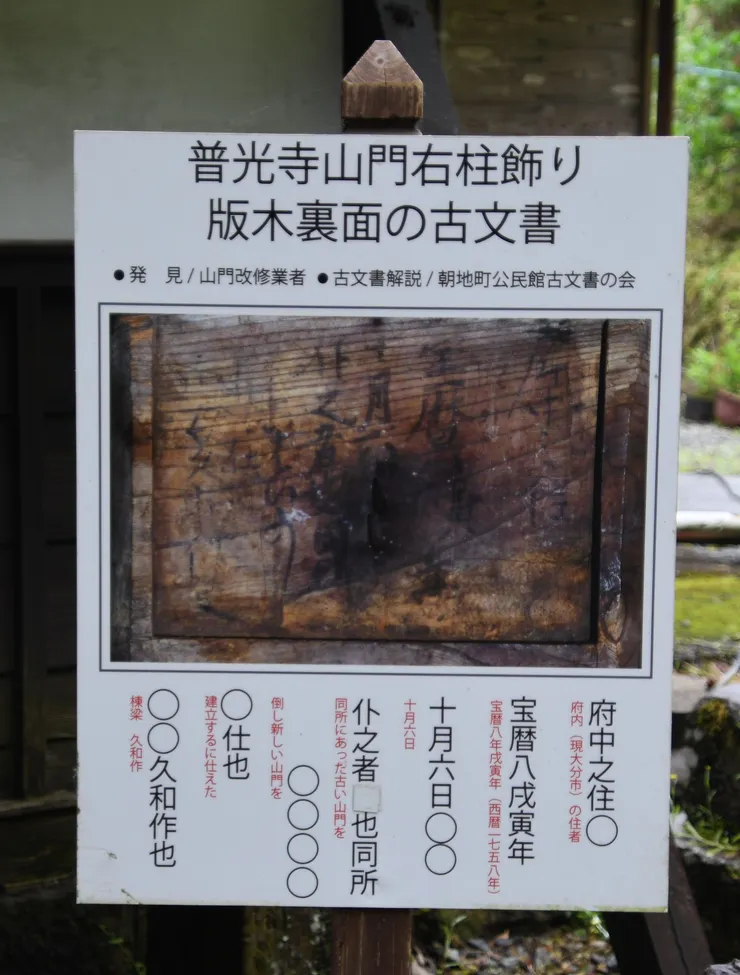 普光寺山門右柱飾り
版木裏面の古文書
●発　見/山門改修業者 ●古文書解説/朝地町公民館古文書の会
府中之住〇
府内（現大分市）の住者
宝暦八戌寅年
宝暦八年戌寅年（西暦一七五八年）
十月六日〇〇
十月六日
仆之者□也同所
同所にあった古い山門を
〇〇〇〇
倒し新しい山門を
〇仕也
建立するに仕えた
〇〇久和作也
棟梁　久和作